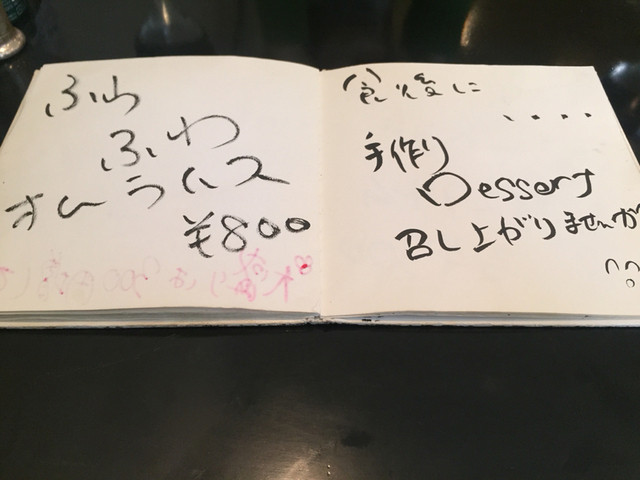 ふわ
ふわ
オムライス
¥800
食後に
....
手作り
Dessert
召し上がりませんか
??